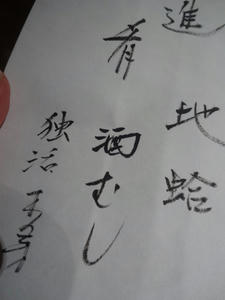 進
肴
地蛤
酒むし
独活